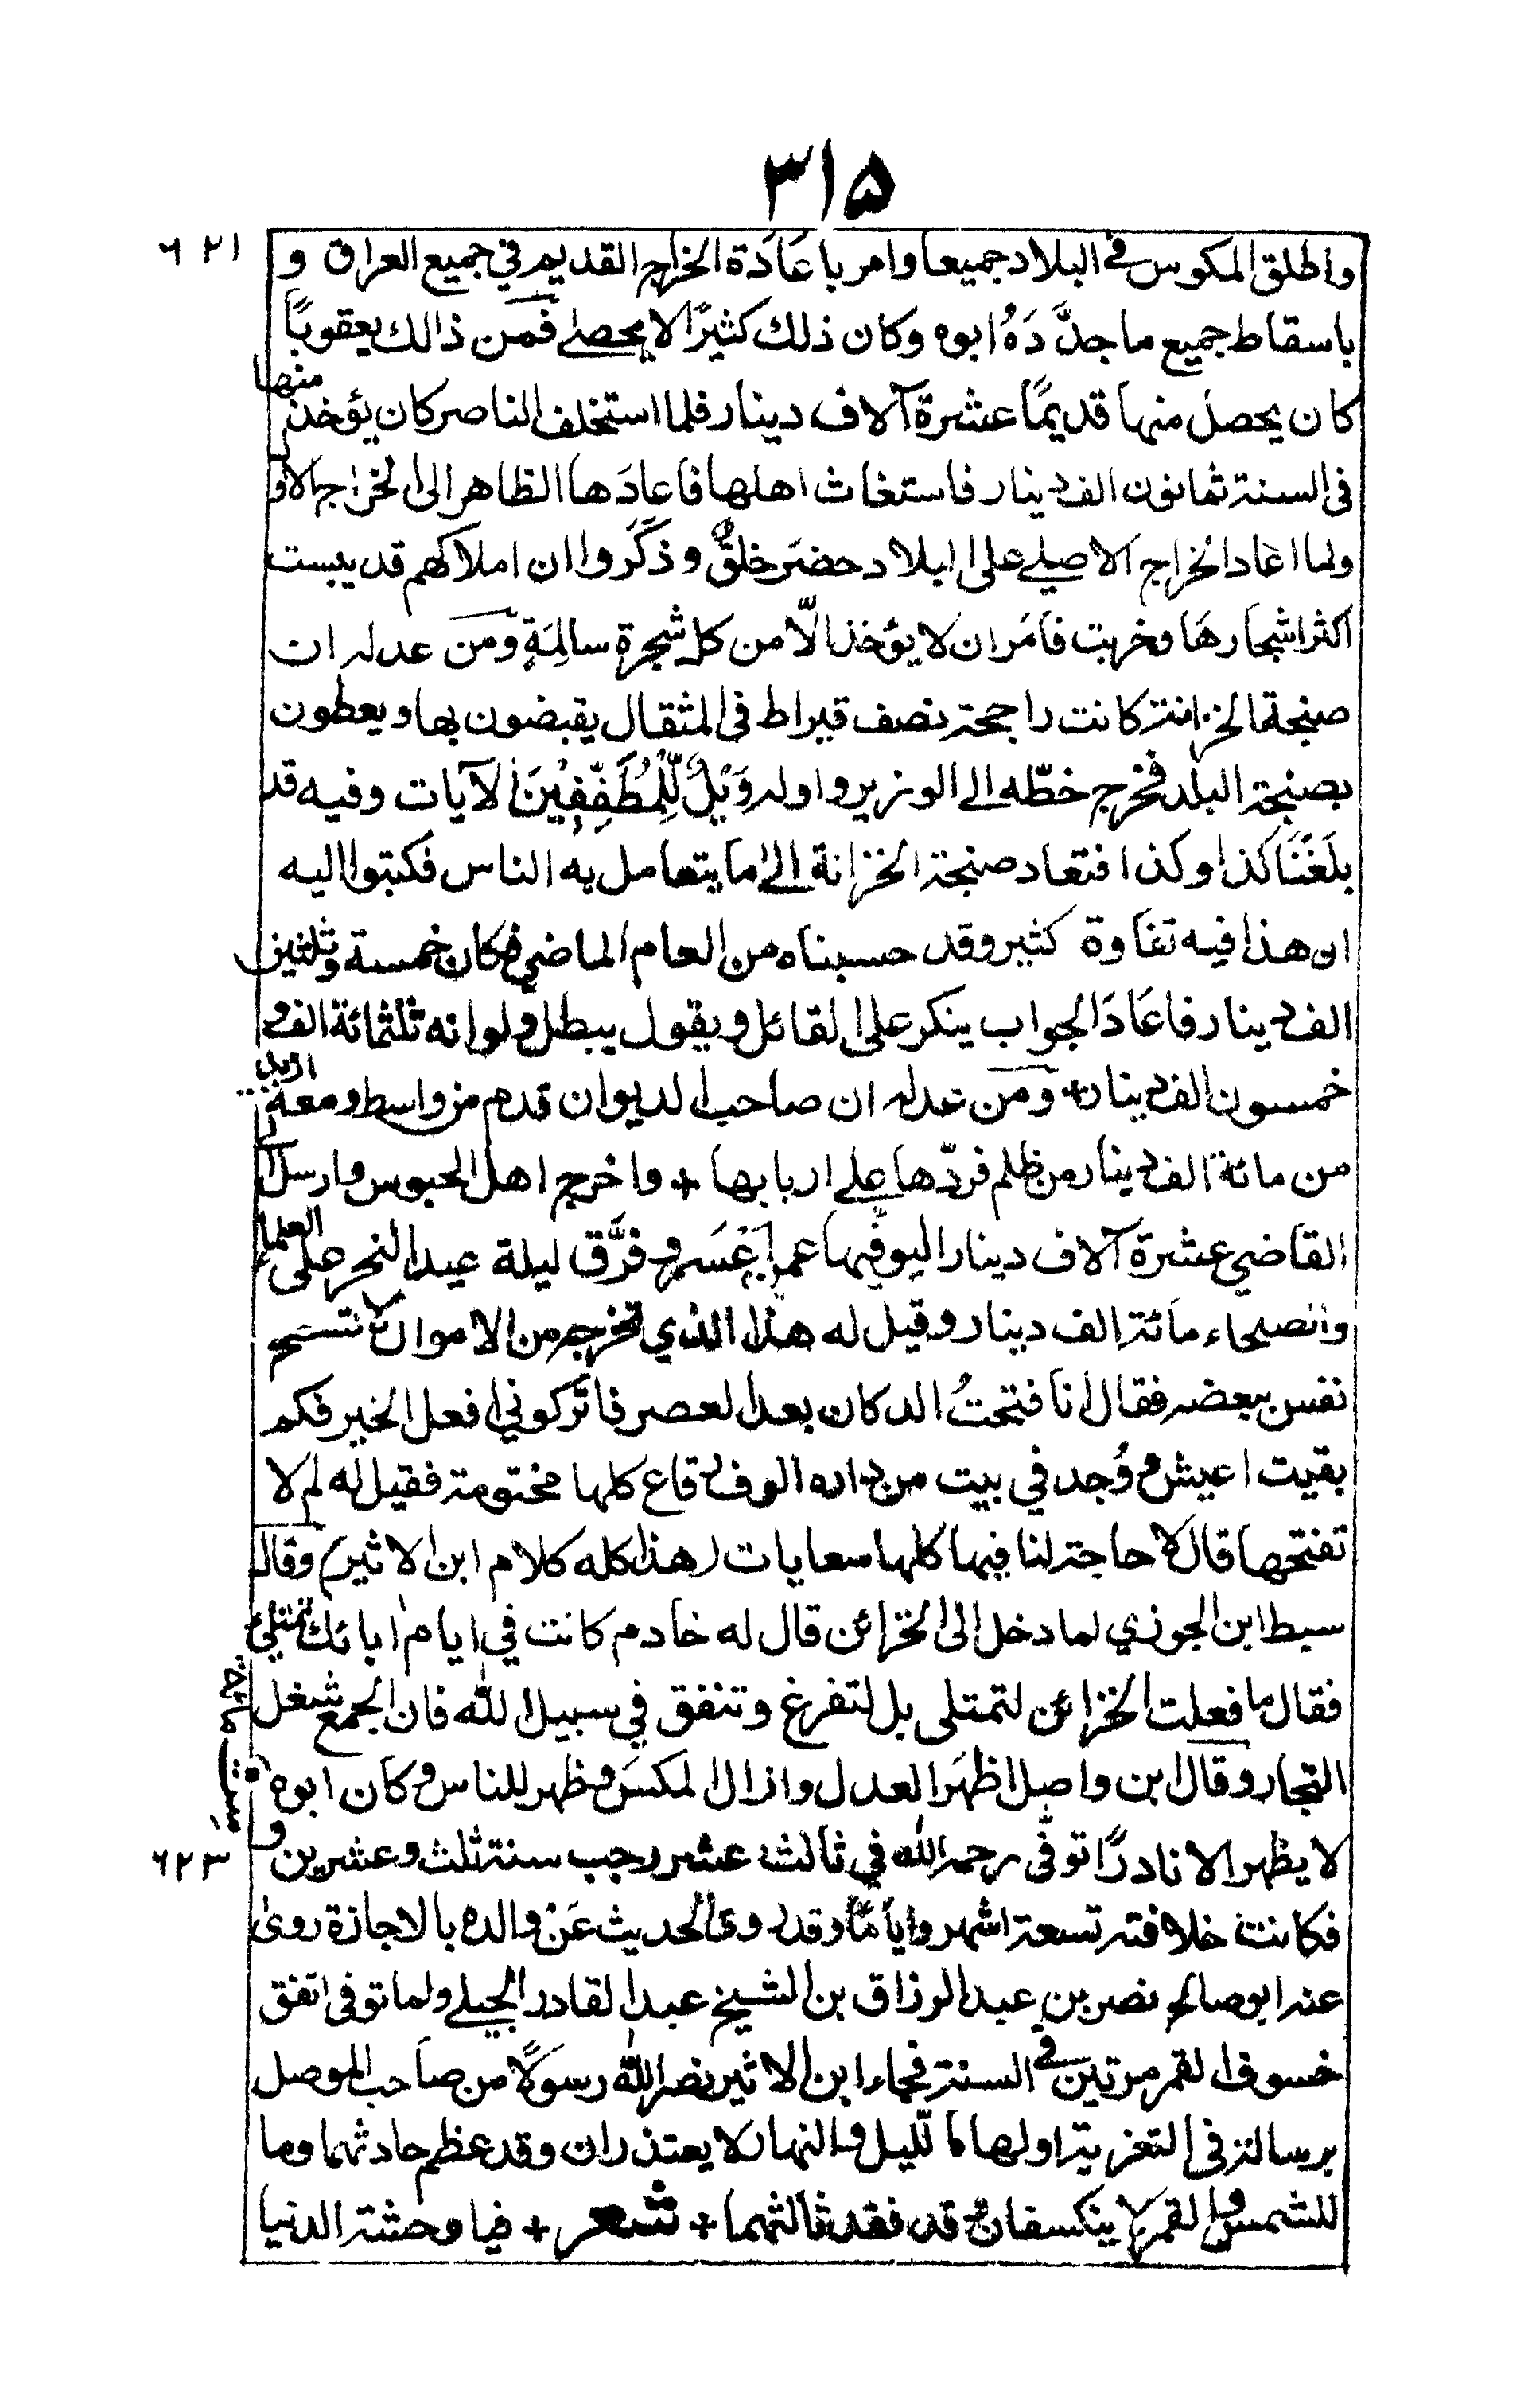 ٣١٥
٦٢١
واطلق المكوس في البلاد جميعا وامر باعَادَة الخراج القديم في جميع العراق و
باسقاط جميع ما جدَّدَهُ ابوه وكان ذلك كثيرًا لا يحصى فمن ذالك يعقوبًا
كان يحصل منها قديمًا عشرة آلاف دينار فلما استخلف الناصر كان يؤخذ منها
في السنة ثمانون الف دينار فاستغاث اهلها فاعادَها الظاهر الى الخراج الاول
ولما اعاد الخراج الاصلي على البلاد حضَر خلقٌ وذكَروا ان املاكهم قد يبست
اكثر اشجارهَا وخربت فامَر ان لا يؤخذ الّا من كل شجرة سالِمَةٍ ومن عدله ان
صنجة الخزانة كانت راجحة نصف قيراط في المثقال يقبضون بها ويعطون
بصنجة البلد فخرج خطّه الى الوزير واوله وَيْلٌ لِّلْمُطَفِّفِيْنَ الآيات وفيه قد
بلغَنَا كذا وكذا فتعاد صنجة الخزانة الى ما يتعامل به الناس فكتبوا اليه
ان هذا فيه تفاوة كثير وقد حسبناه من العام الماضي فكان خمسة وثلثين
الف دينار فاعَادَ الجواب ينكر على القائل ويقول يبطل ولو انه ثلثمائة الف و
خمسون الف دينار + ومن عدله ان صاحب الديوان قدم من واسط ومعه ازيد
من مائة الف دينار من ظلم فردّها على اربابها + واخرج اهل الحبوس وارسل الى
القاضي عشرة آلاف دينار ليوفيها عمن اعْسَر وفرَّق ليلة عيد النحر على العلماء
والصلحاء مائة الف دينار وقيل له هذا الذي تخرجه من الاموال لا تسمح
نفس ببعضه فقال انا فتحتُ الدكان بعد العصر فاتركوني افعل الخير فكم
بقيت اعيش ووُجد في بيت من داره الوف رقاع كلها مختومة فقيل له لم لا
تفتحها قال لا حاجة لنا فيها كلها سعايات (هذا كله كلام ابن الاثير) وقال
سبط ابن الجوزي لما دخل الى الخزائن قال له خادم كانت في ايام ابائك تمتلئ
فقال ما فعلت الخزائن لتمتلى بل لتفرغ وتنفق في سبيل الله فان الجمع شغل
التجار وقال ابن واصل اظهَر العدل وازال المكسَ وظهر للناس وكان ابوه
لا يظهر الا نادرًا توفّى رحمه الله في ثالث عشر رجب سنة ثلث وعشرين و
ستمائة
٦٢٣
فكانت خلافته تسعة اشهر واياما وقد روى الحديث عَنْ والده بالاجازة روىٰ
عنه ابو صالح نصر بن عبد الرزاق بن الشيخ عبد القادر الجيلي ولما توفى اتفق
خسوف القمر مرتين في السنة فجاء ابن الاثير نصر الله رسولًا من صاحب الموصل
برسالة في التعزية اولها ما للّيل والنهار لا يعتذران وقد عظم حادثهما وما
للشمس والقمر لا ينكسفان وقد فقد ثالثهما + شعر + فيا وحشة الدنيا